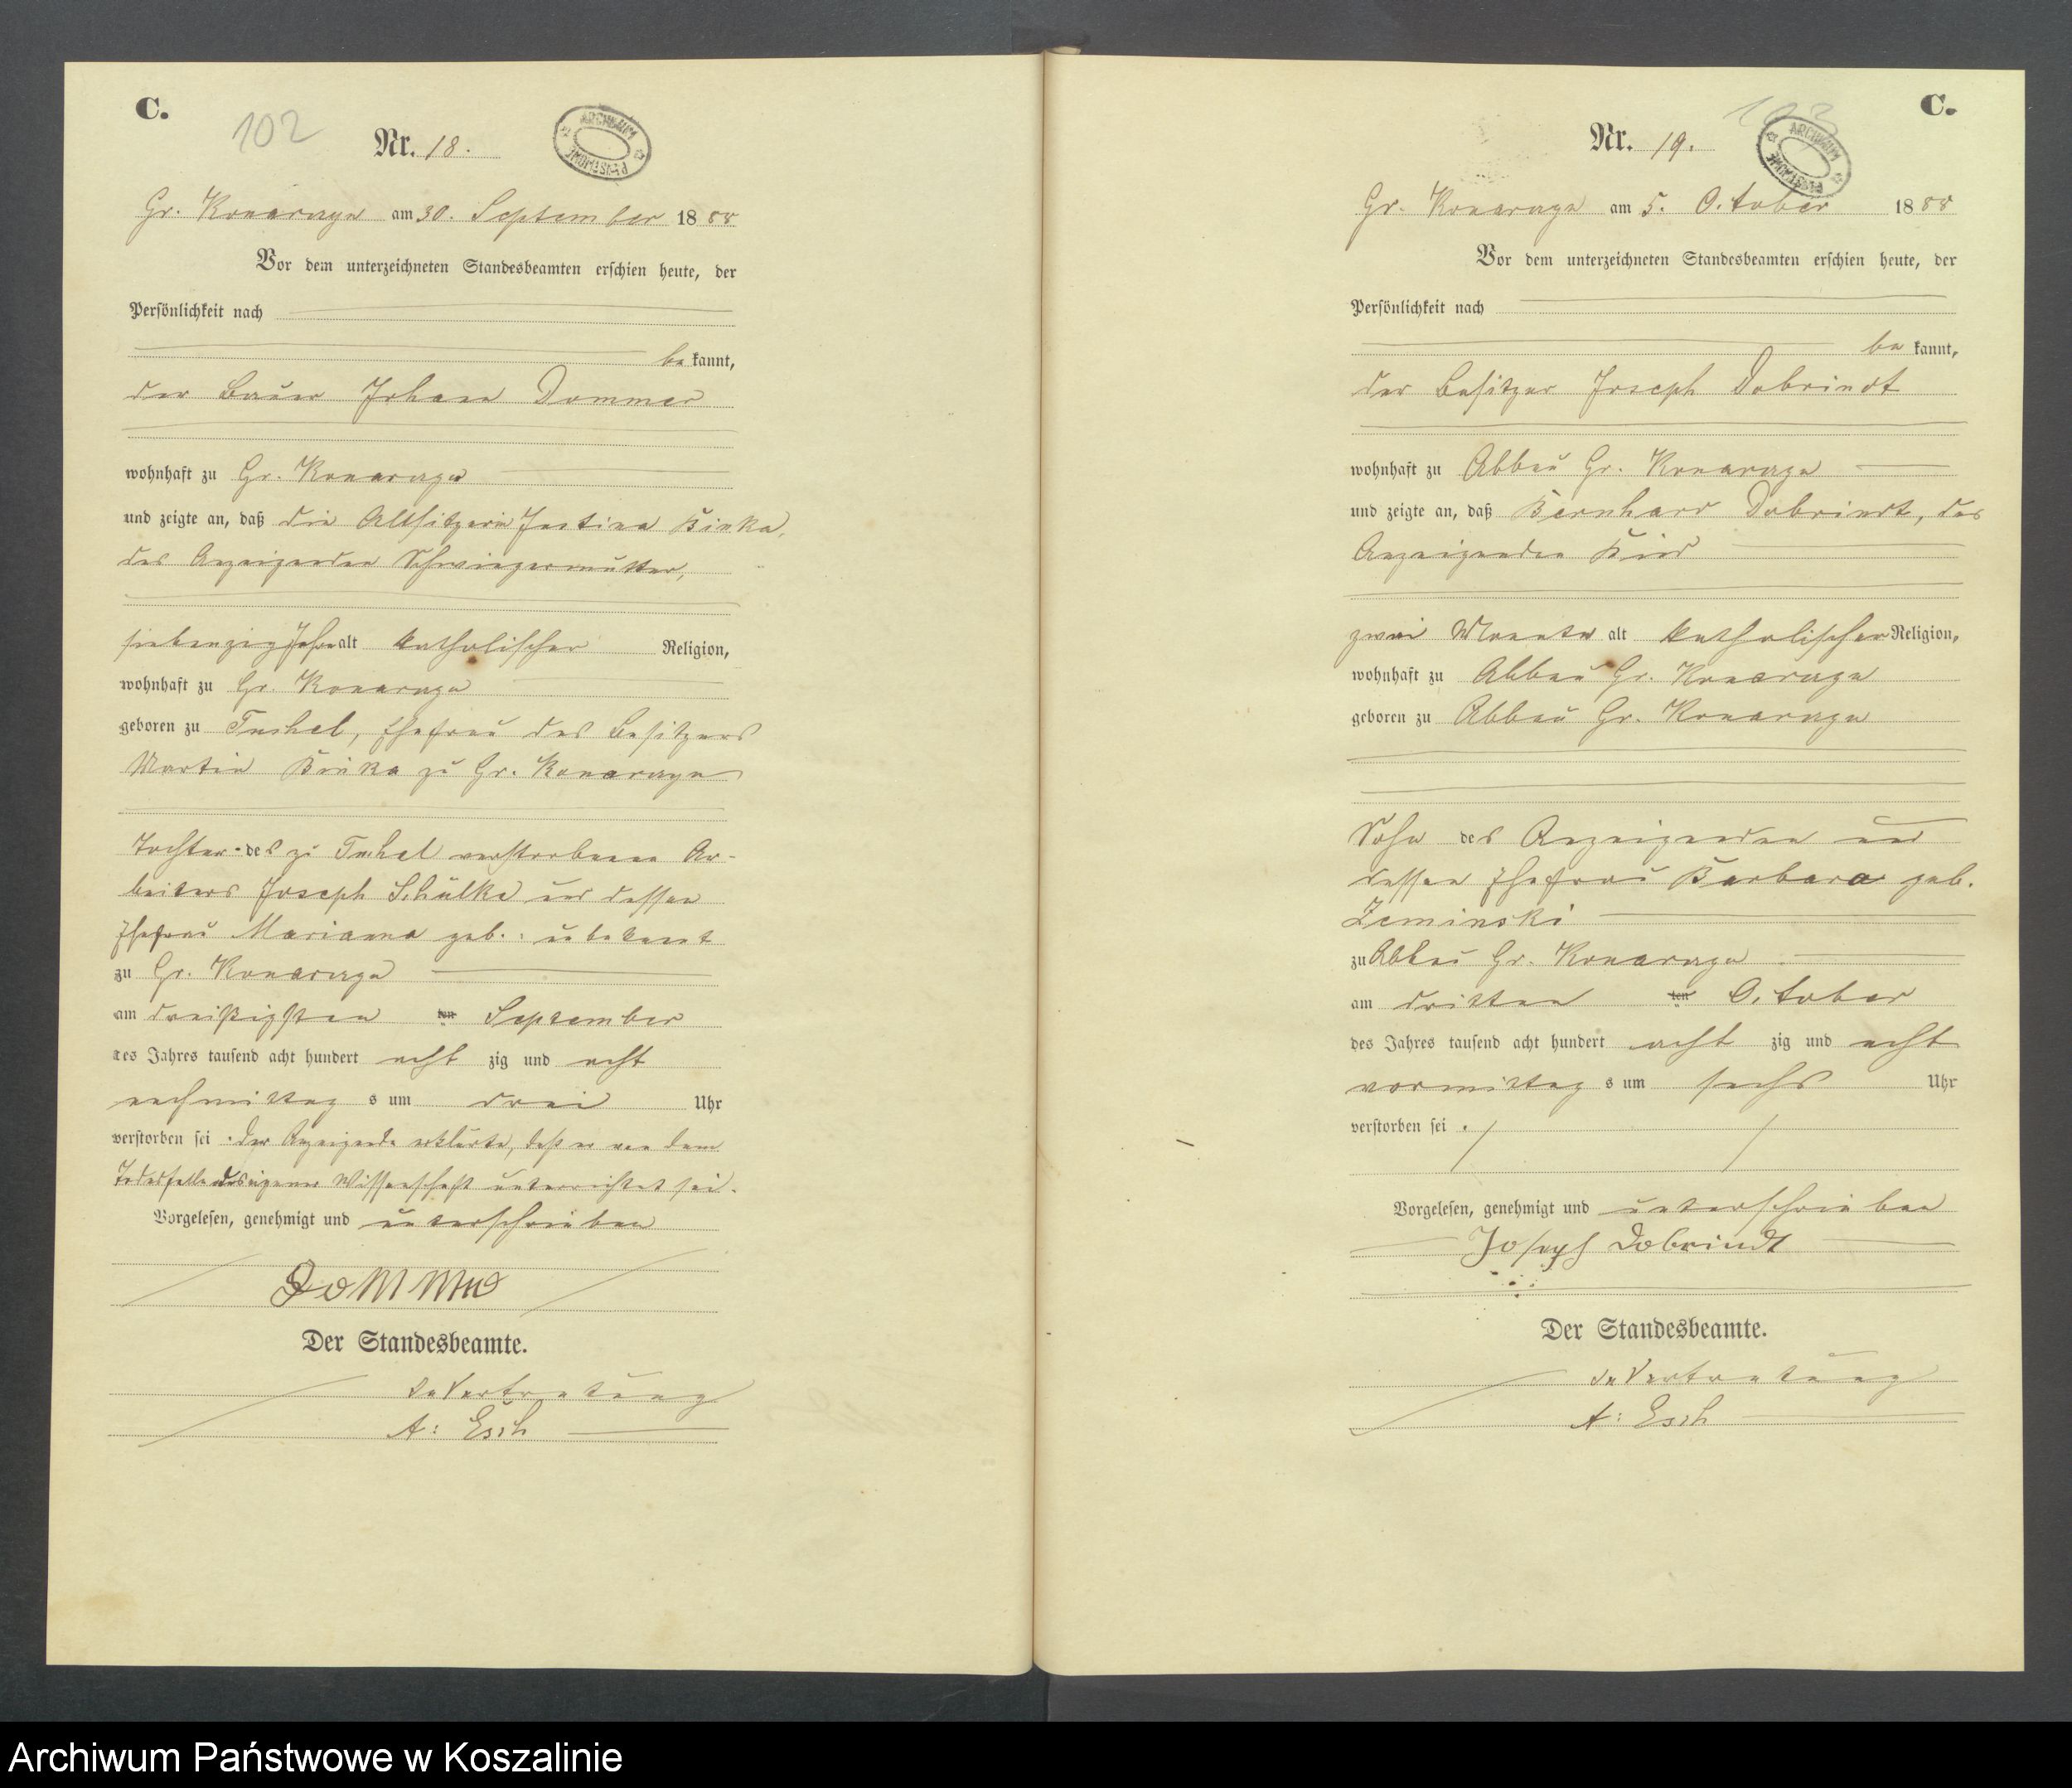 C.
102
Nr. 18.
ARCHIWUM PAŃSTWOWE
Gr. Konarczyn am 30. September 1888
Vor dem unterzeichneten Standesbeamten erschien heute, der
Persönlichkeit nach
be kannt,
der Bauer Johann Dommer
wohnhaft zu Gr. Konarczyn
und zeigte an, daß die Altsitzerin Justina Binka,
des Anzeigenden Schwiegermutter,
siebenzig Jahre alt katholischer Religion,
wohnhaft zu Gr. Konarczyn
geboren zu Tuchel, Ehefrau des Besitzers
Martin Binka zu Gr. Konarczyn
Tochter des zu Tuchel verstorbenen Ar-
beiters Joseph Schülke und dessen
Ehefrau Marianna geb.: unbekannt
zu Gr. Konarczyn
am dreißigsten ten September
des Jahres tausend acht hundert acht zig und acht
nachmittag s um drei Uhr
verstorben sei. Der Anzeigende erklärte, daß er von dem
Todesfalle aus eigener Wissenschaft unterrichtet sei.
Vorgelesen, genehmigt und unterschrieben
Dommer
Der Standesbeamte.
In Vertretung
A: Esch
C.
103
Nr. 19.
ARCHIWUM PAŃSTWOWE
Gr. Konarczyn am 5. October 1888
Vor dem unterzeichneten Standesbeamten erschien heute, der
Persönlichkeit nach
be kannt,
der Besitzer Joseph Dobrindt
wohnhaft zu Abbau Gr. Konarczyn
und zeigte an, daß Bernhard Dobrindt, des
Anzeigenden Kind
zwei Monate alt katholischer Religion,
wohnhaft zu Abbau Gr. Konarczyn
geboren zu Abbau Gr. Konarczyn
Sohn des Anzeigenden und
dessen Ehefrau Barbara geb.
Zeminski
zu Abbau Gr. Konarczyn
am dritten ten October
des Jahres tausend acht hundert acht zig und acht
vormittag s um sechs Uhr
verstorben sei.
Vorgelesen, genehmigt und unterschrieben
Joseph Dobrindt
Der Standesbeamte.
In Vertretung
A: Esch
Archiwum Państwowe w Koszalinie